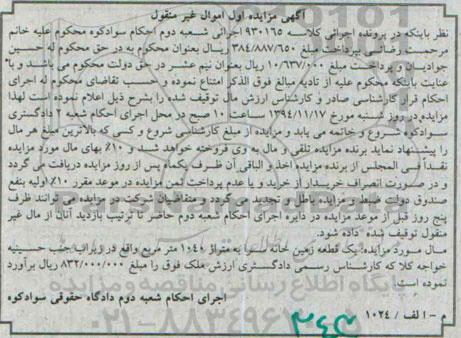 آگهی مزایده اول اموال غیر منقول
نظر باینکه در پرونده اجرائی کلاسه ۹۳۰۱۶۵ اجرائی شعبه دوم احکام سوادکوه محکوم علیه خانم
مرحمت رضائی بپرداخت مبلغ ۳۸۴/۸۸۷/۶۵۰ ریال بعنوان محکوم به در حق محکوم له حسین
جوادیان و پرداخت مبلغ ۱۰/۶۳۷/۰۰۰ ریال بعنوان نیم عشر در حق دولت محکوم می باشد و با
عنایت باینکه محکوم علیه از تادیه مبالغ فوق الذکر امتناع نموده و حسب تقاضای محکوم له اجرای
احکام قرار کارشناسی صادر و کارشناس ارزش مال توقیف شده را بشرح ذیل اعلام نموده است لهذا
مزایده در روز شنبه مورخ ۱۳۹۴/۱۱/۱۷ ساعت ۱۰ صبح در محل اجرای احکام شعبه ۲ دادگستری
سوادکوه شروع و خاتمه می یابد و مزایده از مبلغ کارشناسی شروع و کسی که بالاترین مبلغ هر مال
را پیشنهاد نماید برنده مزایده تلقی و مال به وی فروخته خواهد شد و ۱۰٪ بهای مال مورد مزایده
نقداً فی المجلس از برنده مزایده اخذ و الباقی آن ظرف یکماه پس از روز مزایده دریافت می گردد
و در صورت انصراف خریدار از خرید و یا عدم پرداخت ثمن مزایده در موعد مقرر ۱۰٪ اولیه بنفع
صندوق دولت ضبط و مزایده باطل و تجدید می گردد و متقاضیان شرکت در مزایده می توانند ظرف
پنج روز قبل از موعد مزایده در دایره اجرای احکام شعبه دوم حاضر تا ترتیب بازدید آنان از مال غیر
منقول توقیف شده داده شود.
مال مورد مزایده: یک قطعه زمین خانه سرا به متراژ ۱۰۴۰ متر مربع واقع در زیراب جنب حسینیه
خواجه کلا که کارشناس رسمی دادگستری ارزش ملک فوق را مبلغ ۸۳۲/۰۰۰/۰۰۰ ریال برآورد
نموده است.
اجرای احکام شعبه دوم دادگاه حقوقی سوادکوه
م - الف / ۱۰۲۴
پایگاه اطلاع رسانی مناقصه و مزایده
۰۲۱-۸۸۳۴۹۶